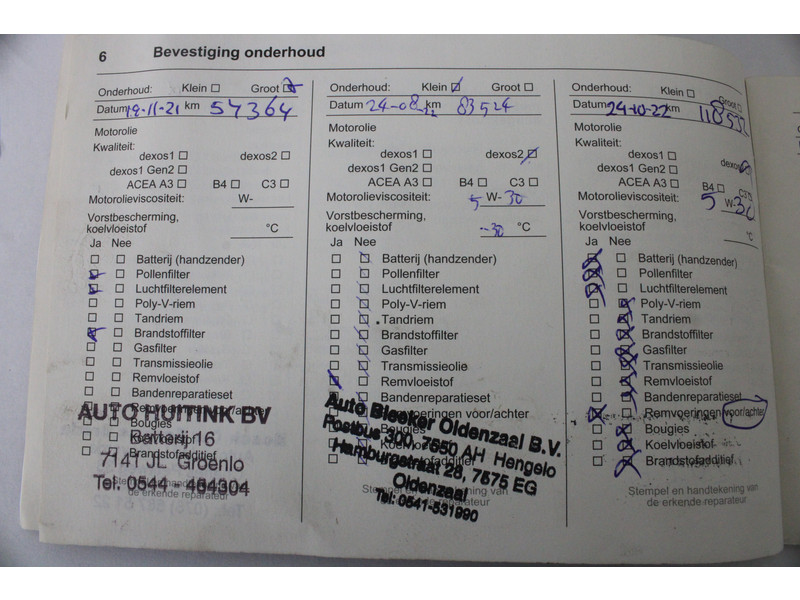 6 Bevestiging onderhoud
Onderhoud: Klein Groot
Datum 19-11-21 km 57364
Motorolie
Kwaliteit:
dexos1 dexos2
dexos1 Gen2
ACEA A3 B4 C3
Motorolieviscositeit: W-
Vorstbescherming,
koelvloeistof °C
Ja Nee
Batterij (handzender)
Pollenfilter
Luchtfilterelement
Poly-V-riem
Tandriem
Brandstoffilter
Gasfilter
Transmissieolie
Remvloeistof
Bandenreparatieset
Remvoeringen voor/achter
Bougies
Koelvloeistof
Brandstofadditief
AUTO HUITINK BV
Batterij 16
7141 JL Groenlo
Tel. 0544 - 464304
Onderhoud: Klein Groot
Datum 24-08-22 km 83524
Motorolie
Kwaliteit:
dexos1 dexos2
dexos1 Gen2
ACEA A3 B4 C3
Motorolieviscositeit: 5 W- 30
Vorstbescherming,
koelvloeistof -30 °C
Ja Nee
Batterij (handzender)
Pollenfilter
Luchtfilterelement
Poly-V-riem
Tandriem
Brandstoffilter
Gasfilter
Transmissieolie
Remvloeistof
Bandenreparatieset
Remvoeringen voor/achter
Bougies
Koelvloeistof
Brandstofadditief
Auto Bleeker Oldenzaal B.V.
Postbus 300, 7550 AH Hengelo
Hamburgstraat 28, 7575 EG
Oldenzaal
Tel: 0541-531990
Stempel en handtekening van
de erkende reparateur
Onderhoud: Klein Groot
Datum 24-10-22 km 118532
Motorolie
Kwaliteit:
dexos1 dexos2
dexos1 Gen2
ACEA A3 B4 C3
Motorolieviscositeit: 5 W- 30
Vorstbescherming,
koelvloeistof °C
Ja Nee
Batterij (handzender)
Pollenfilter
Luchtfilterelement
Poly-V-riem
Tandriem
Brandstoffilter
Gasfilter
Transmissieolie
Remvloeistof
Bandenreparatieset
Remvoeringen voor/achter
Bougies
Koelvloeistof
Brandstofadditief
Stempel en handtekening van
de erkende reparateur